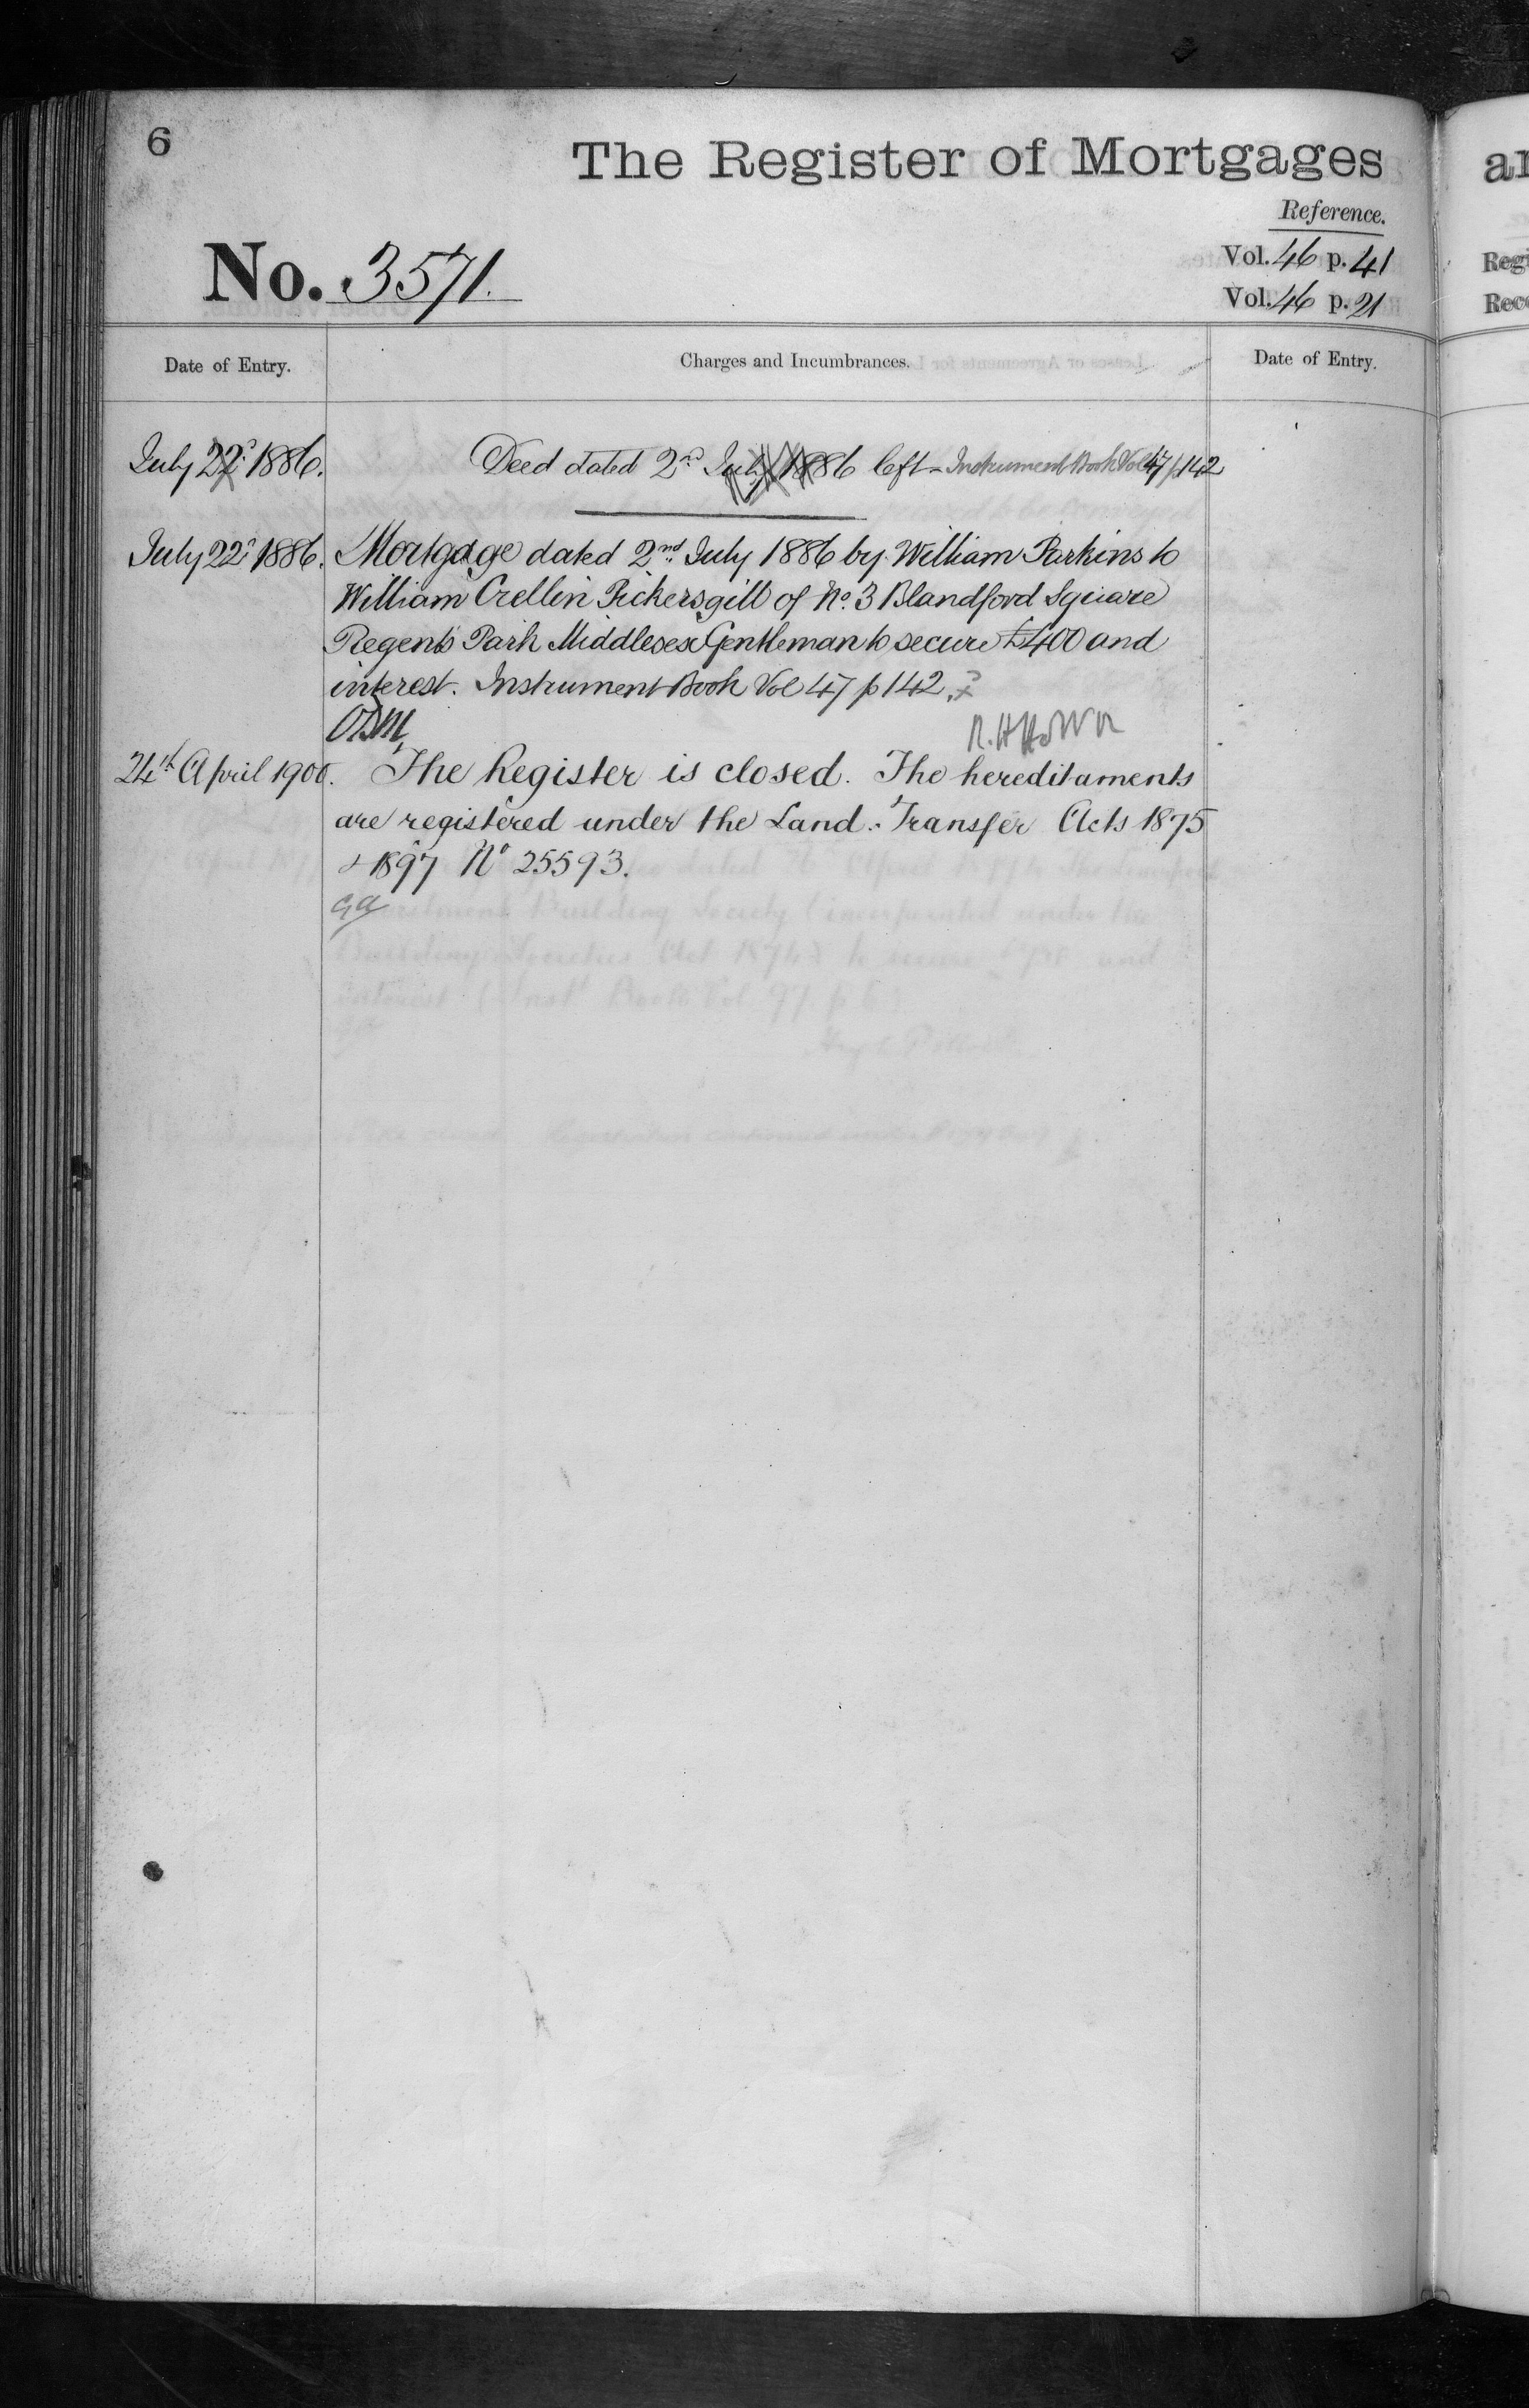 6
The Register of Mortgages
Reference.
No. 3571.
Vol. 46 p. 41
Vol. 46 p. 21
Date of Entry.
Charges and Incumbrances.
Date of Entry.
July 22d 1886.
Deed dated 2nd July 1886 left - Instrument Book Vol 47 p 142
July 22d 1886.
Mortgage dated 2nd July 1886 by William Parkins to
William Crellin Pickersgill of No. 3 Blandford Square
Regents Park Middlesex Gentleman to secure £400 and
interest. Instrument Book Vol 47 p 142.
24th April 1900.
The Register is closed. The hereditaments
are registered under the Land Transfer Acts 1875
& 1897 No 25593.
Regi
Rec